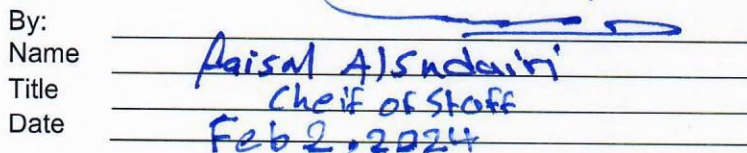 By:
Name Faisal AlSudairi
Title Cheif of Staff
Date Feb 2. 2024